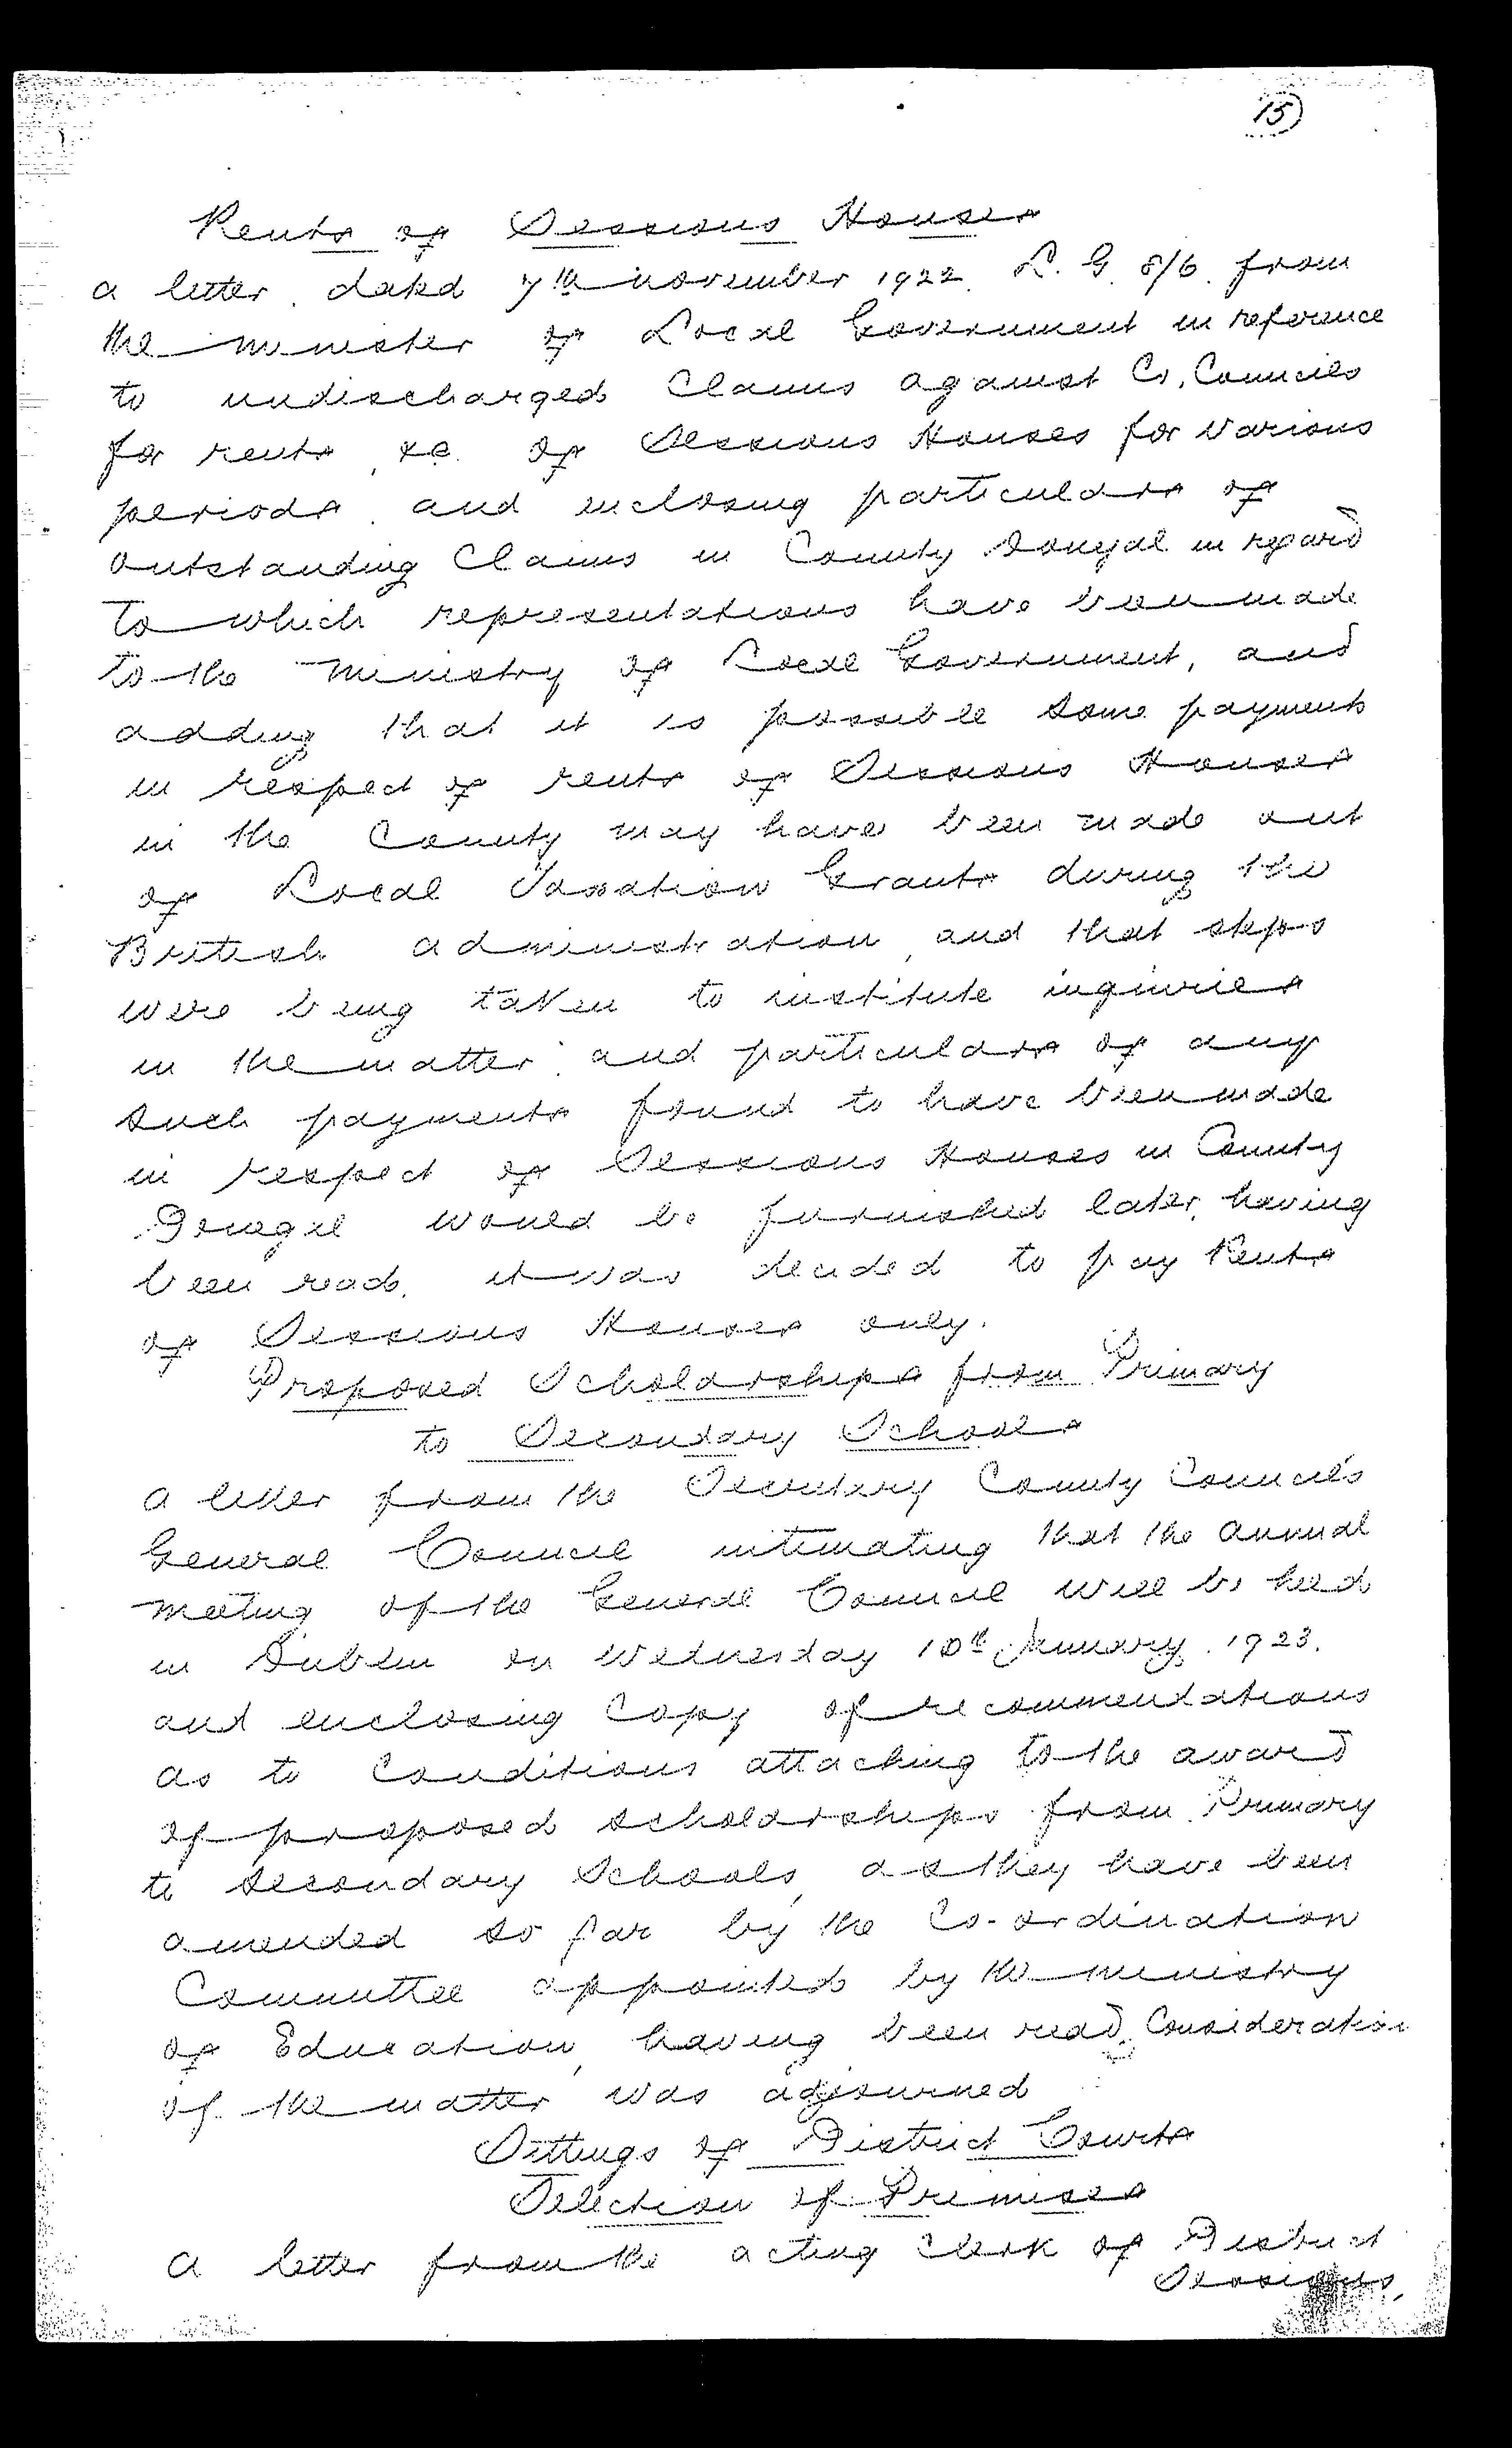 15
Rents of Sessions Houses
a letter dated 7th november 1922. L. G. 8/6. from
the minister of Local Government in reference
to undischarged Claims against Co. Councils
for rents, &c. of Sessions Houses for various
periods, and inclosing particulars of
outstanding Claims in County Donegal in regard
to which representations have been made
to the ministry of Local Government, and
adding that it is possible some payments
in respect of rents of Sessions Houses
in the County may have been made out
of Local Taxation Grants during the
British administration, and that steps
were being taken to institute inquiries
in the matter, and particulars of any
such payments found to have been made
in respect of Sessions Houses in County
Donegal would be furnished later, having
been read, it was decided to pay Rents
of Sessions Houses only.
Proposed Scholarships from Primary
to Secondary Schools
a letter from the Secretary County Councils
General Council intimating that the annual
meeting of the General Council will be held
in Dublin on Wednesday 10th January, 1923.
and enclosing Copy of recommendations
as to Conditions attaching to the award
of proposed scholarships from Primary
to secondary Schools, as they have been
amended so far by the Co-ordination
Committee appointed by the ministry
of Education, having been read, Consideration
of the matter was adjourned
Sittings of District Courts
Selection of Premises
a letter from the acting Clerk of District
Sessions,